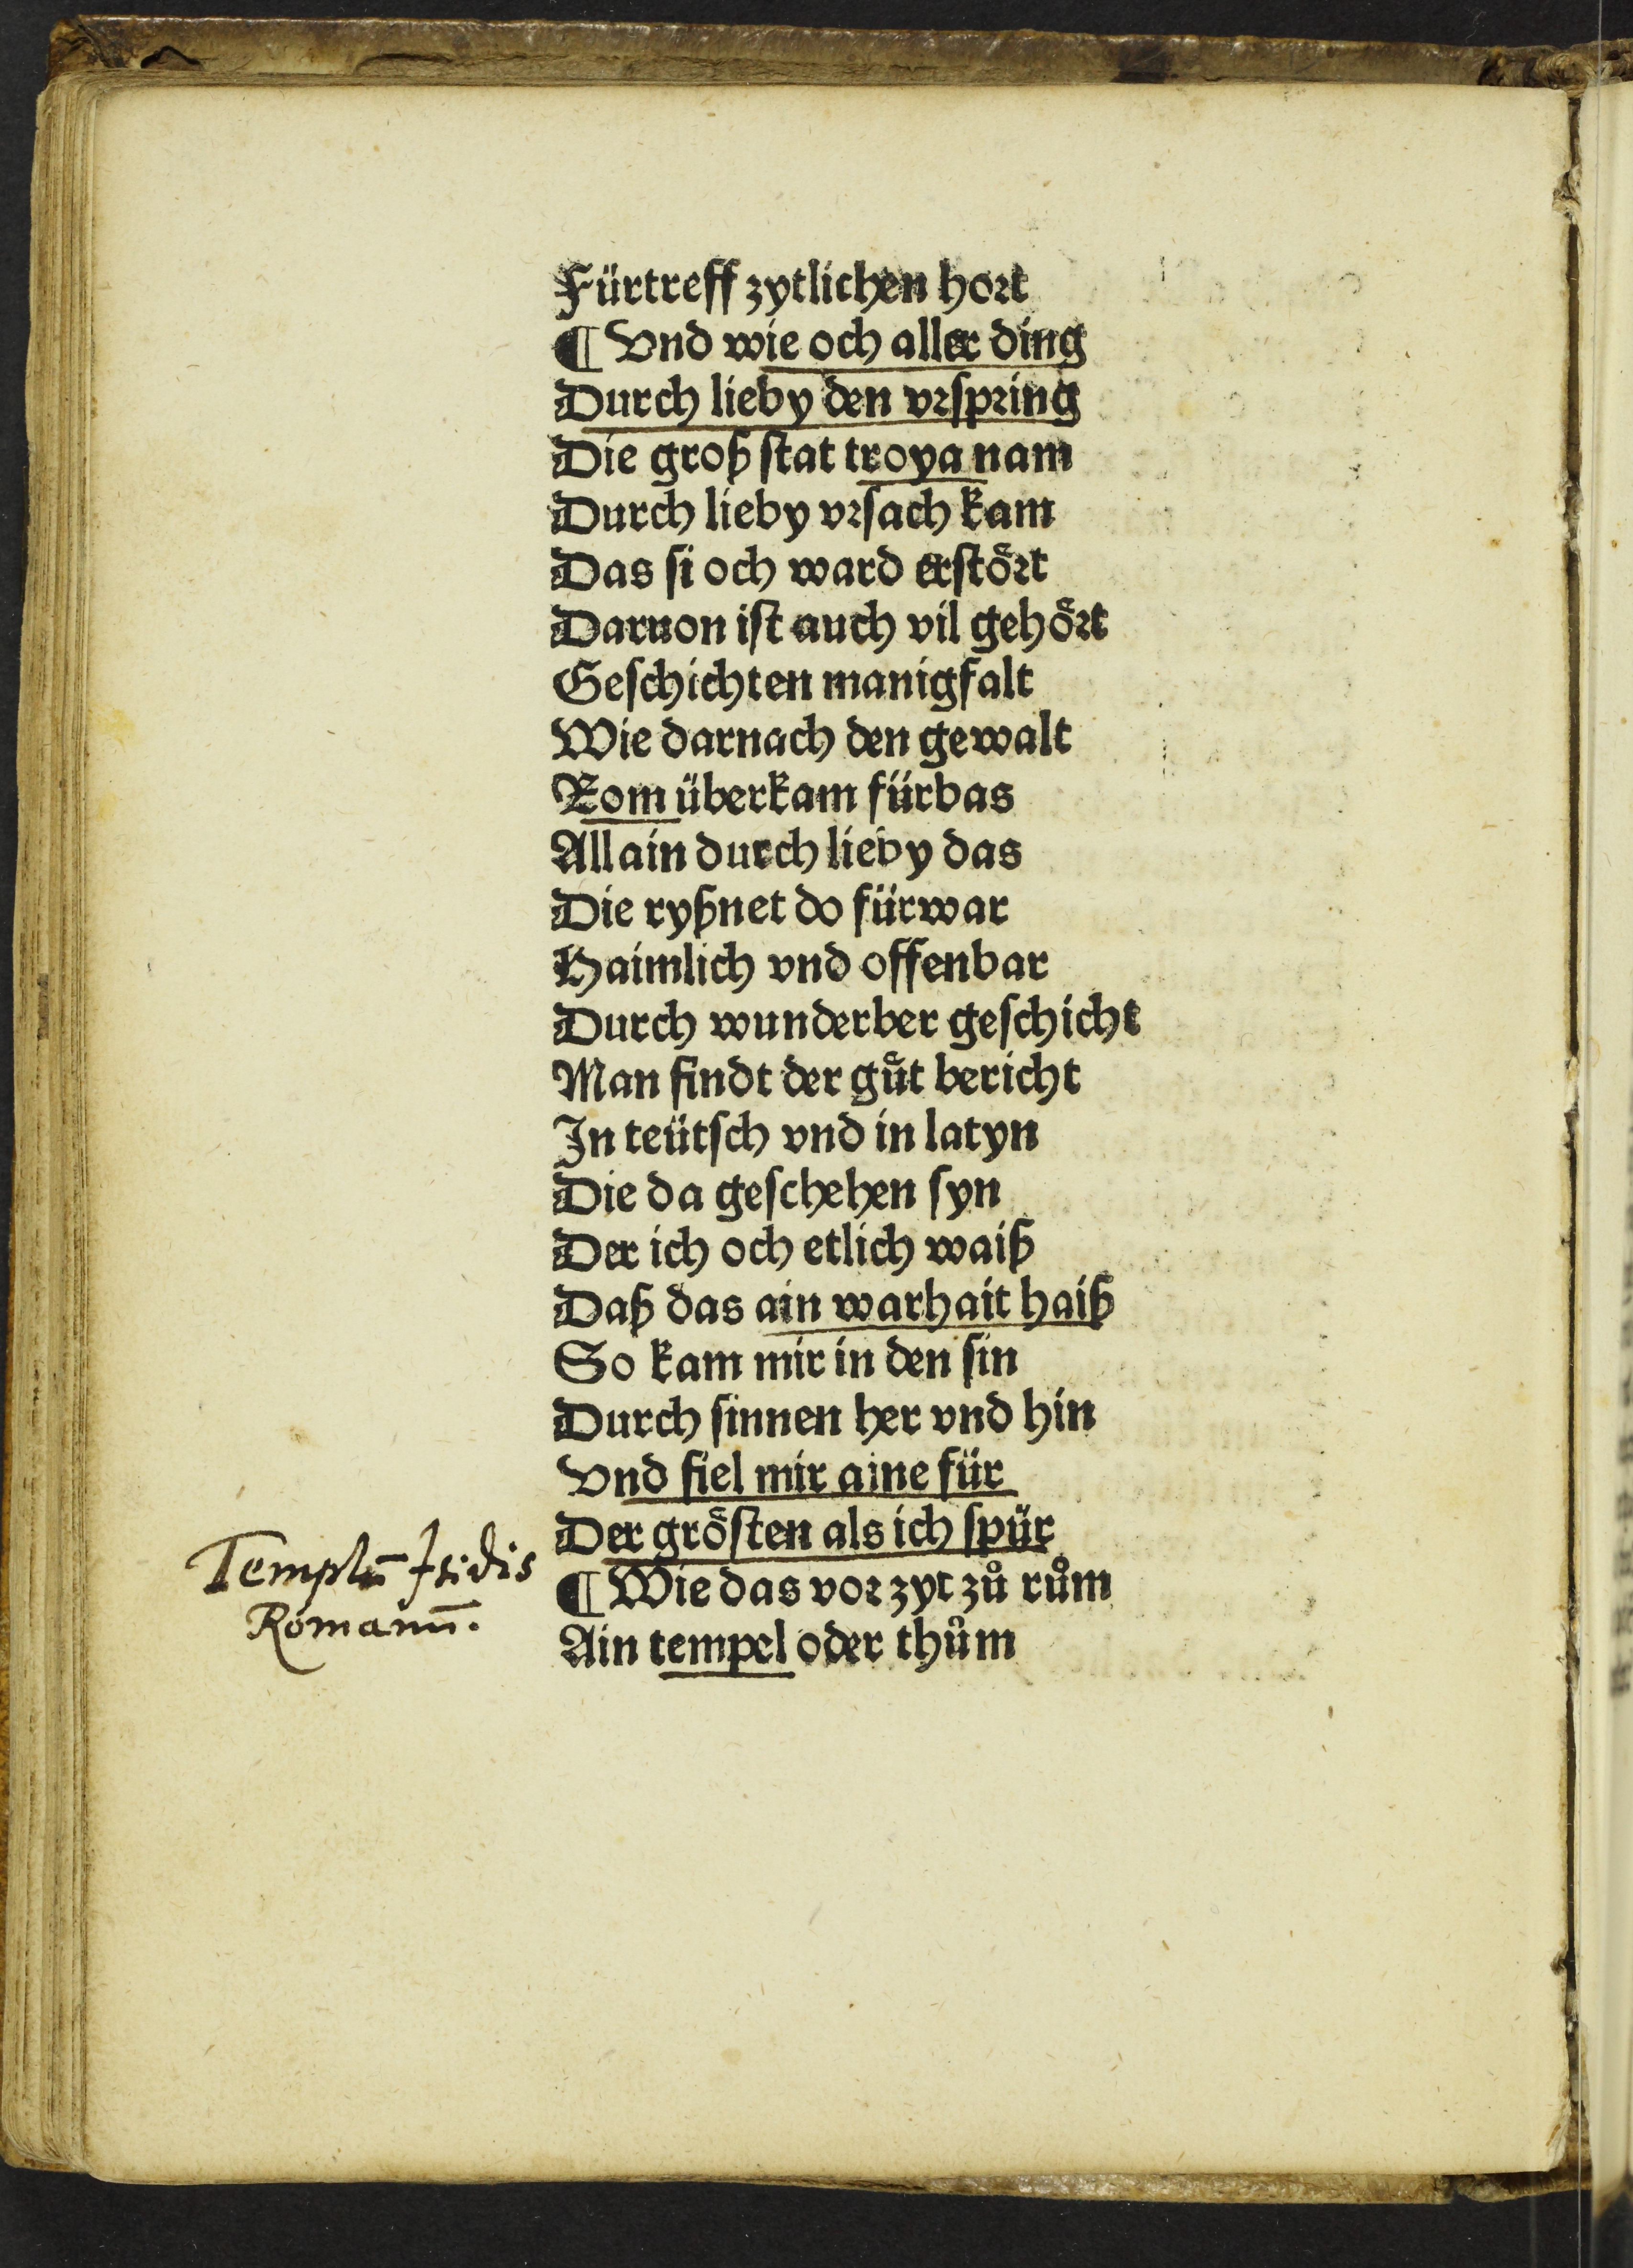 Fürtreff zytlichen hort
¶ Vnd wie och aller ding
Durch lieby den vrspring
Die groß stat troya nam
Durch lieby vrsach kam
Das si och ward erstoͤrt
Daruon ist auch vil gehoͤrt
Geschichten manigfalt
Wie darnach den gewalt
Rom überkam fürbas
Allain durch lieby das
Die ryßnet do fürwar
Haimlich vnd offenbar
Durch wunderber geschicht
Man findt der guͤt bericht
In teütsch vnd in latyn
Die da geschehen syn
Der ich och etlich waiß
Daß das ain warhait haiß
So kam mir in den sin
Durch sinnen her vnd hin
Vnd fiel mir aine für
Der groͤsten als ich spür
¶ Wie das vor zyt zů rům
Ain tempel oder thům
Templū Isidis
Romanū.